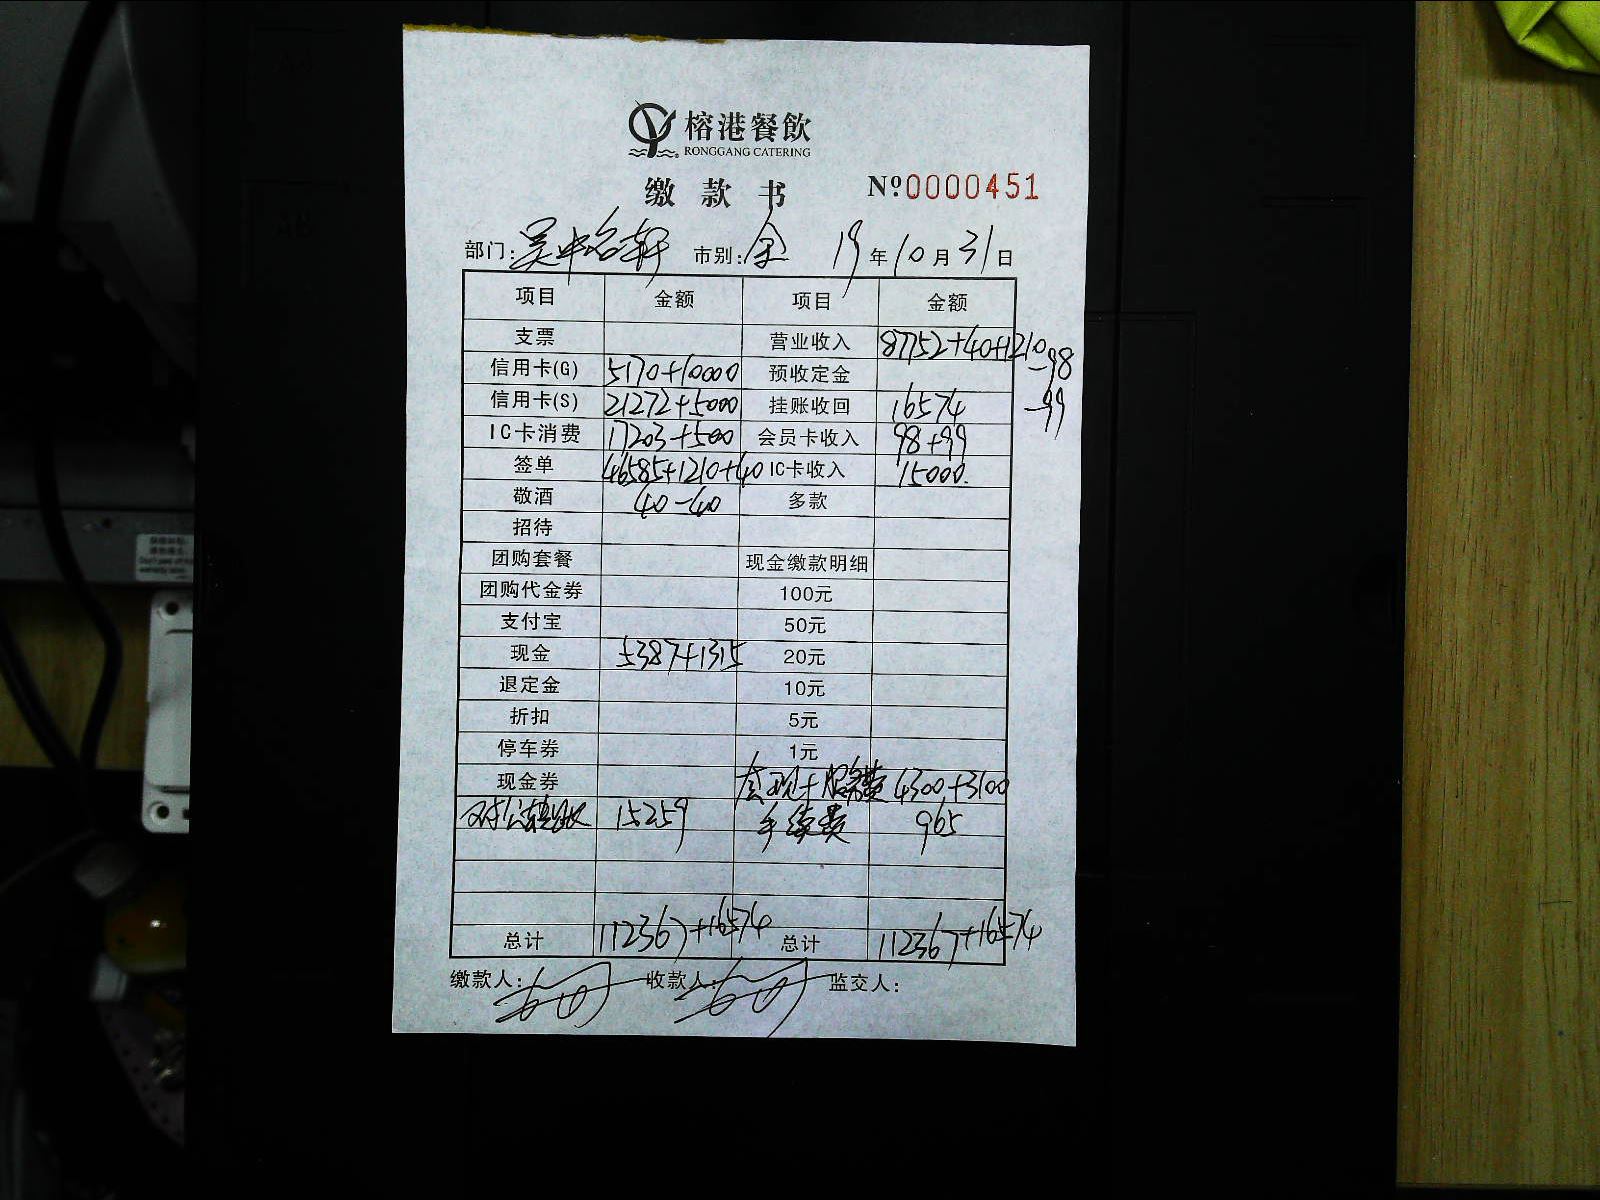 榕港餐飲
RONGGANG CATERING
缴款书 №0000451
部门：吴中名轩 市别：全 19年10月31日
项目 金额 项目 金额
支票 营业收入 87752+40+1210-98
信用卡(G) 5170+10000 预收定金
信用卡(S) 21272+5000 挂账收回 16574 -99
IC卡消费 17203+500 会员卡收入 98+99
签单 46585+1210+40 IC卡收入 15000.
敬酒 40-40 多款
招待
团购套餐 现金缴款明细
团购代金券 100元
支付宝 50元
现金 5387+1315 20元
退定金 10元
折扣 5元
停车券 1元
现金券 4300+3100
对公转账 15259 手续费 965
总计 112367+16574 总计 112367+16574
缴款人： 收款人： 监交人：